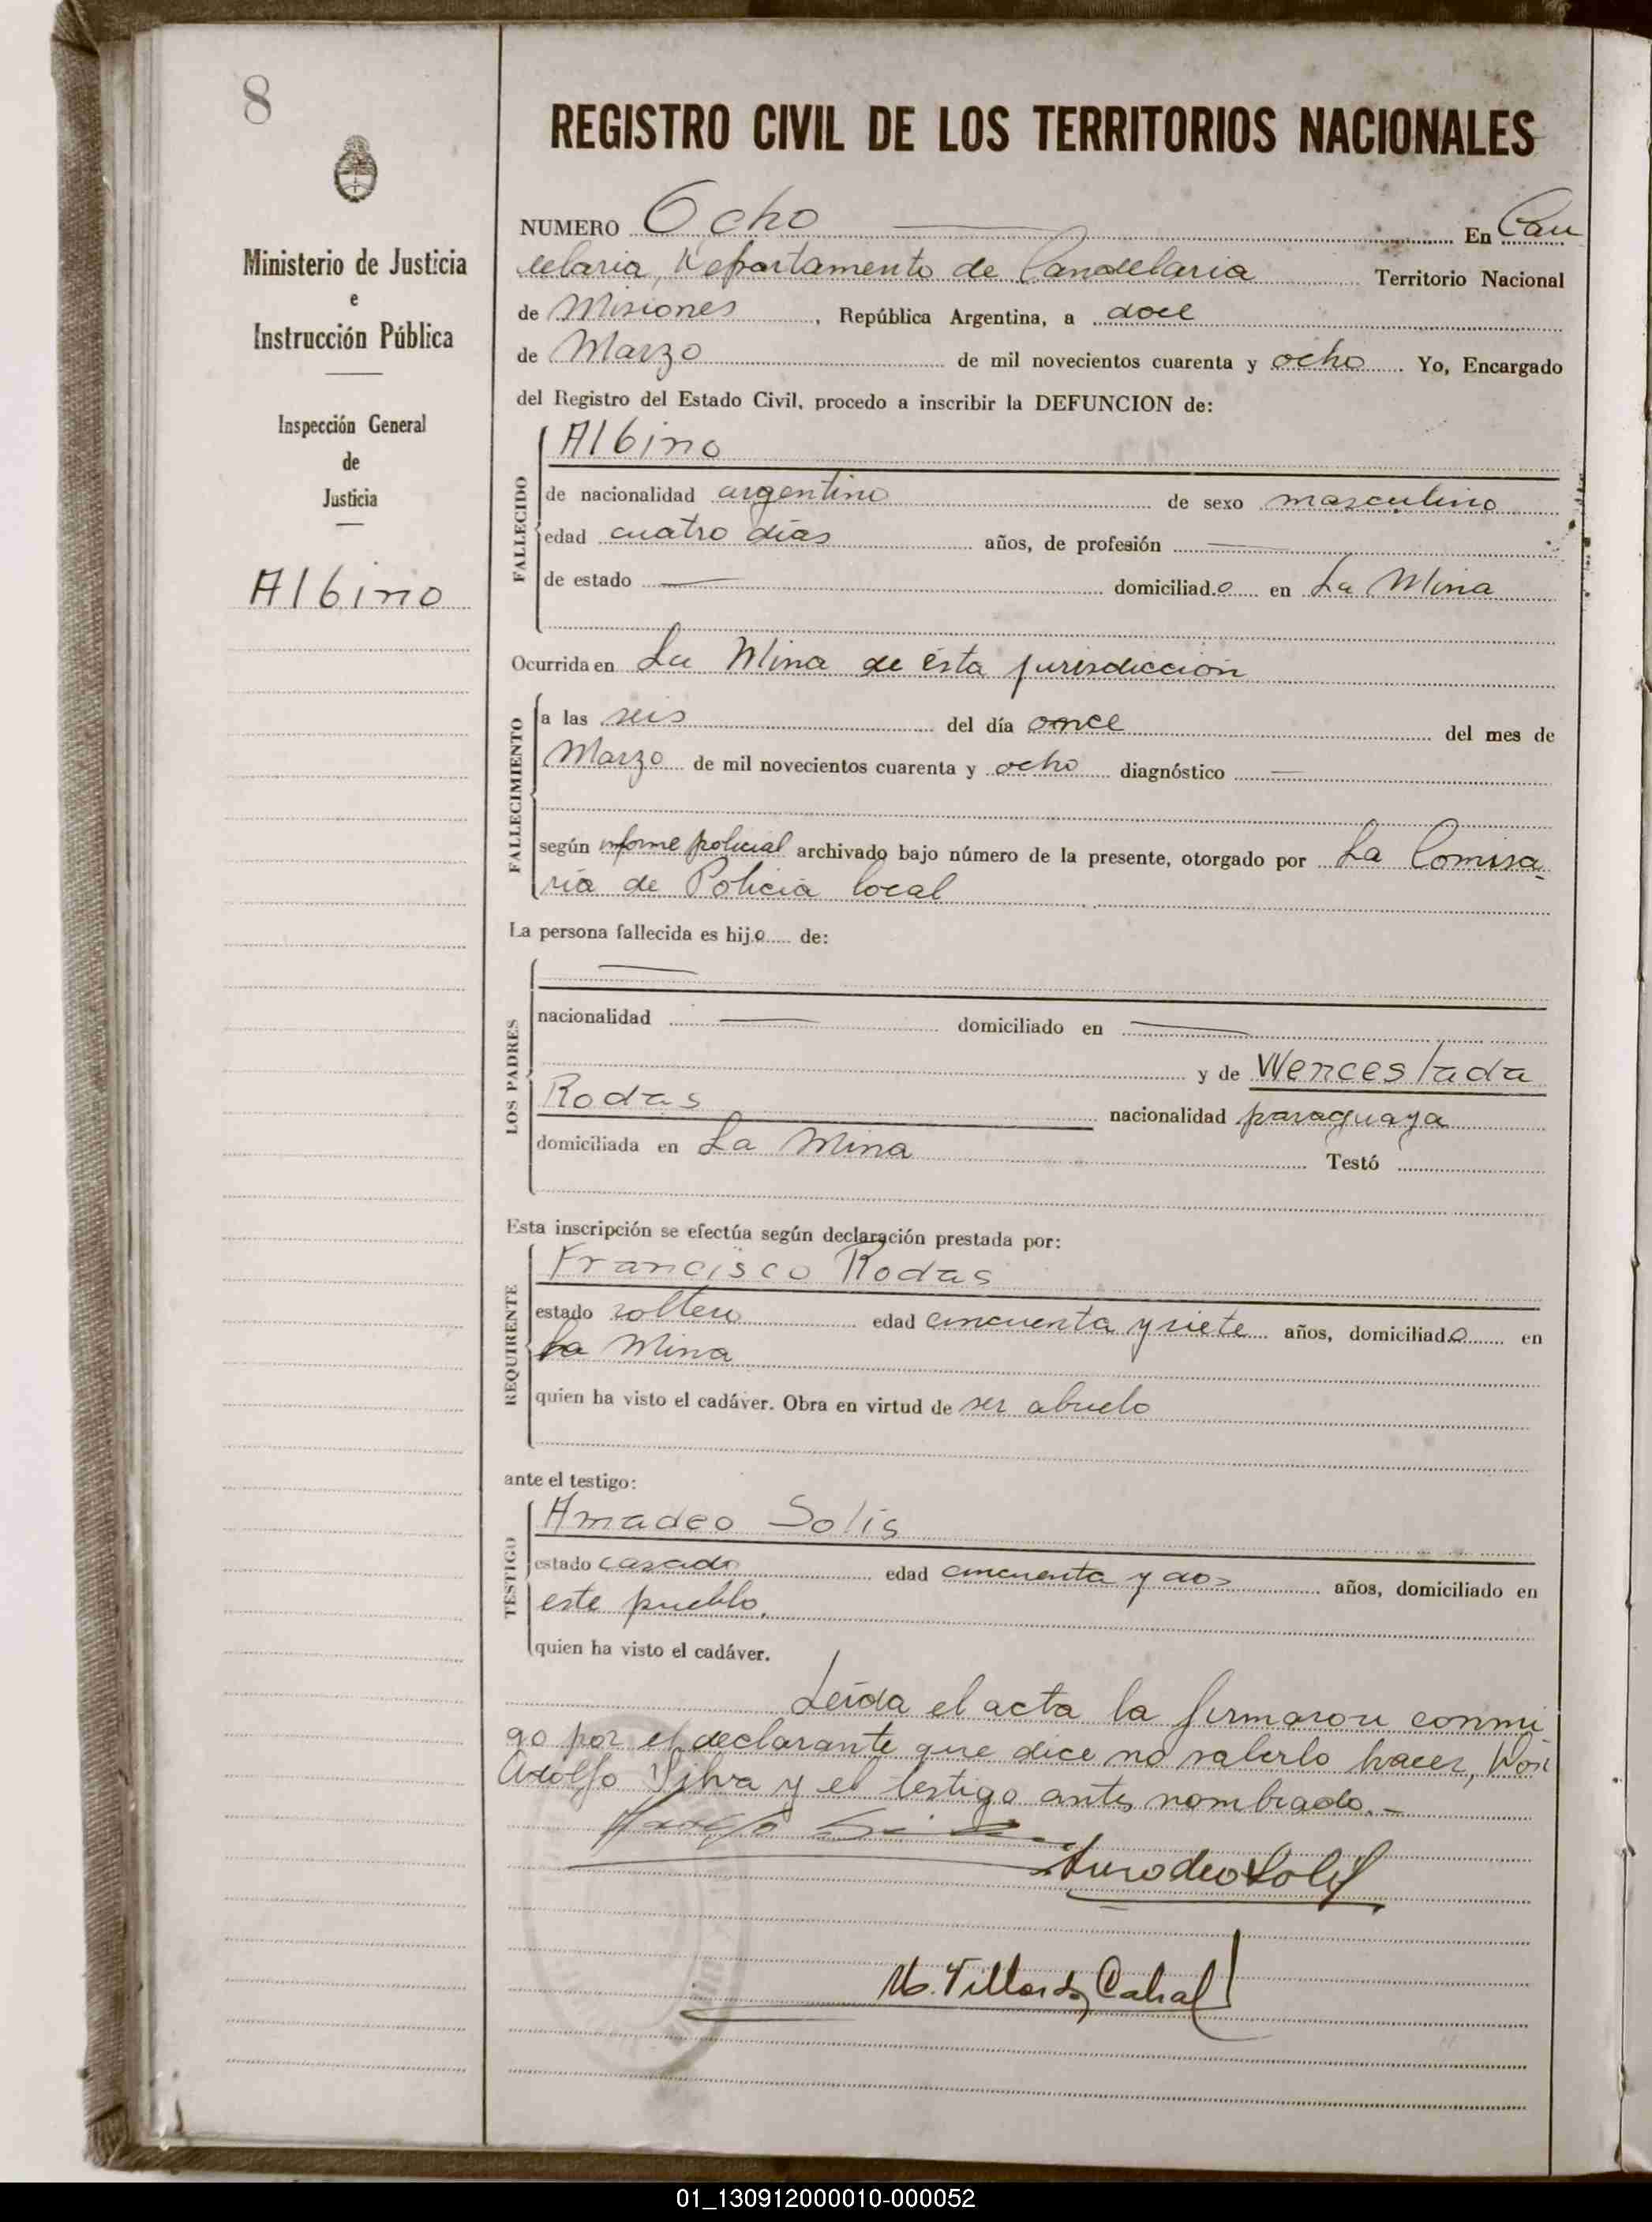 8
Ministerio de Justicia
e
Instrucción Pública
Inspección General
de
Justicia
Albino
REGISTRO CIVIL DE LOS TERRITORIOS NACIONALES
NUMERO Ocho En Can
delaria, Departamento de Candelaria Territorio Nacional
de Misiones, República Argentina, a doce
de Marzo de mil novecientos cuarenta y ocho. Yo, Encargado
del Registro del Estado Civil, procedo a inscribir la DEFUNCION de:
FALLECIDO
Albino
de nacionalidad argentino de sexo masculino
edad cuatro dias años, de profesión —
de estado — domiciliado en La Mina
Ocurrida en La Mina de ésta jurisdiccion
FALLECIMIENTO
a las seis del día once del mes de
Marzo de mil novecientos cuarenta y ocho diagnóstico —
según informe policial archivado bajo número de la presente, otorgado por La Comisa-
ria de Policia local
La persona fallecida es hijo de:
LOS PADRES
—
nacionalidad — domiciliado en —
y de Wenceslada
Rodas nacionalidad paraguaya
domiciliada en La Mina Testó
Esta inscripción se efectúa según declaración prestada por:
REQUIRENTE
Francisco Rodas
estado soltero edad cincuenta y siete años, domiciliado en
La Mina
quien ha visto el cadáver. Obra en virtud de ser abuelo
ante el testigo:
TESTIGO
Amadeo Solis
estado casado edad cincuenta y dos años, domiciliado en
este pueblo.
quien ha visto el cadáver.
Leida el acta la firmaron conmi
go por el declarante que dice no saberlo hacer, Don
Adolfo Silva y el testigo antes nombrado.-
Amadeo Solis
Cabral
01_130912000010-000052